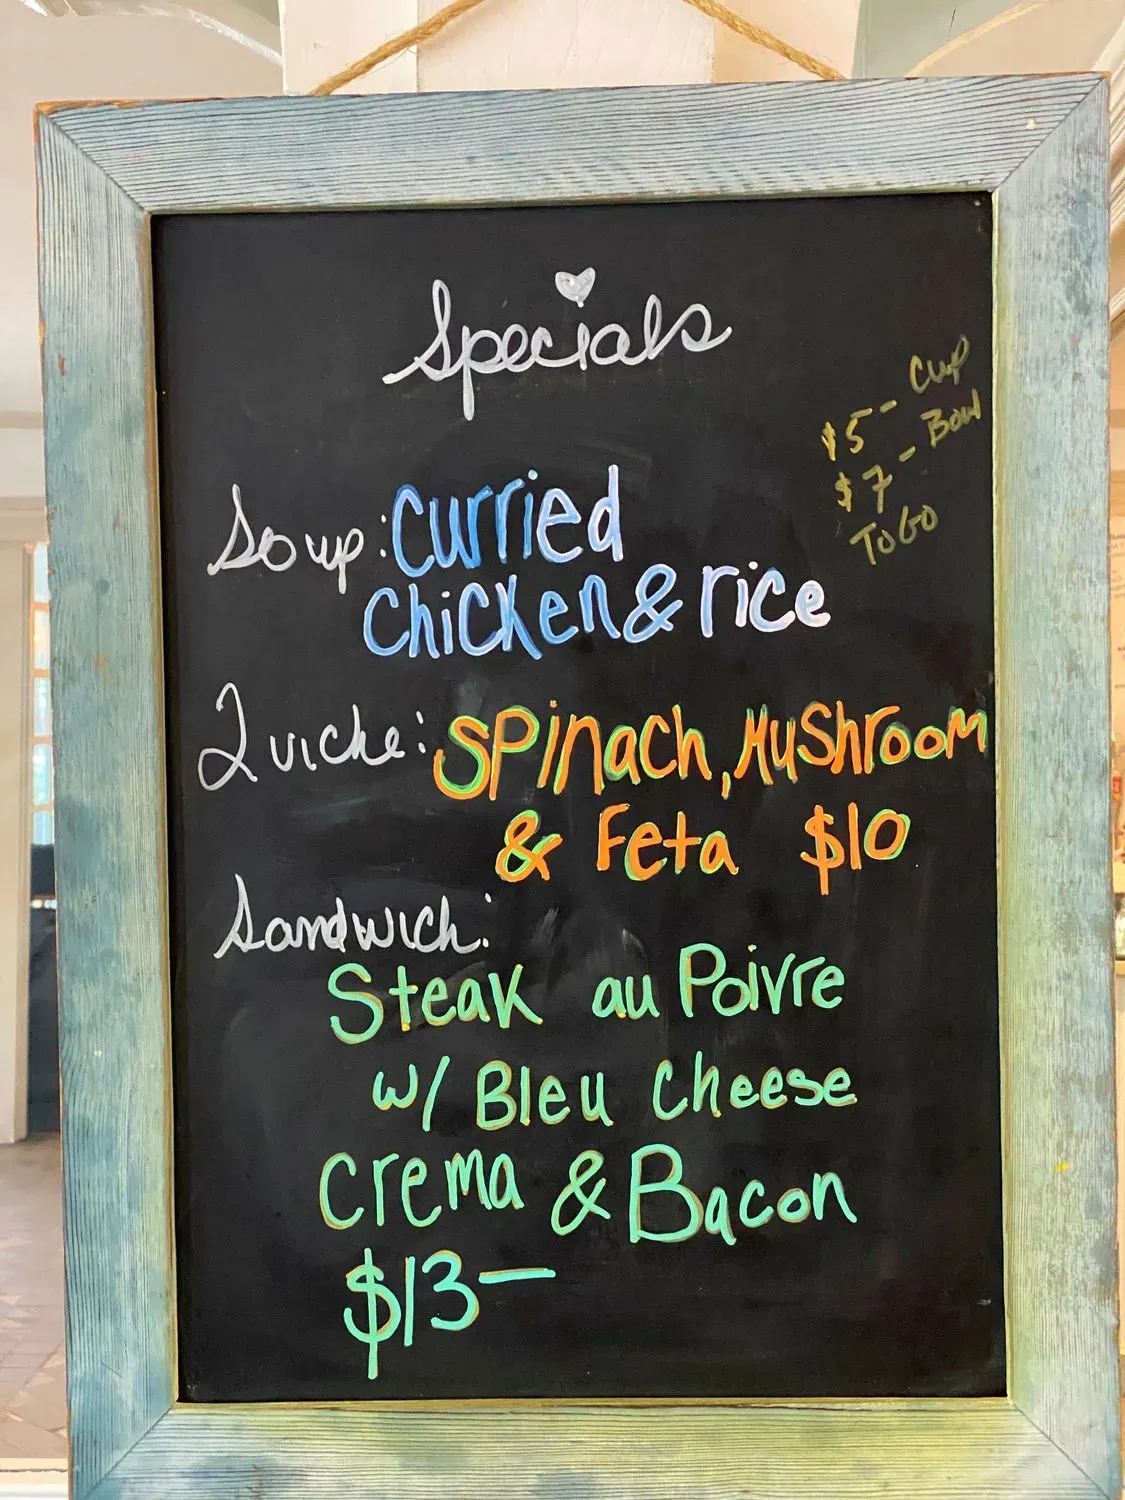 Specials
$5- Cup
$7- Bowl
To Go
Soup: Curried
Chicken & rice
Quiche: Spinach, Mushroom
& Feta $10
Sandwich:
Steak au Poivre
w/ Bleu Cheese
Crema & Bacon
$13-